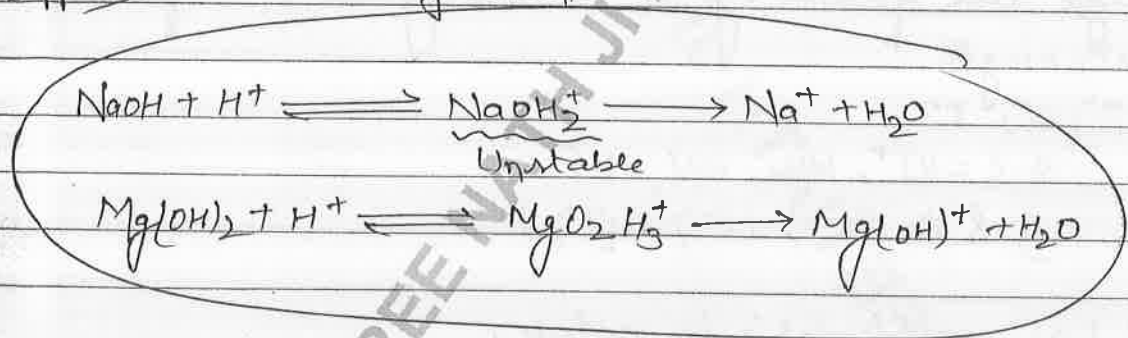 NaOH + H⁺ ⇌ NaOH₂⁺ ⟶ Na⁺ + H₂O
Unstable
Mg(OH)₂ + H⁺ ⇌ MgO₂H₃⁺ ⟶ Mg(OH)⁺ + H₂O
REE NATH JI